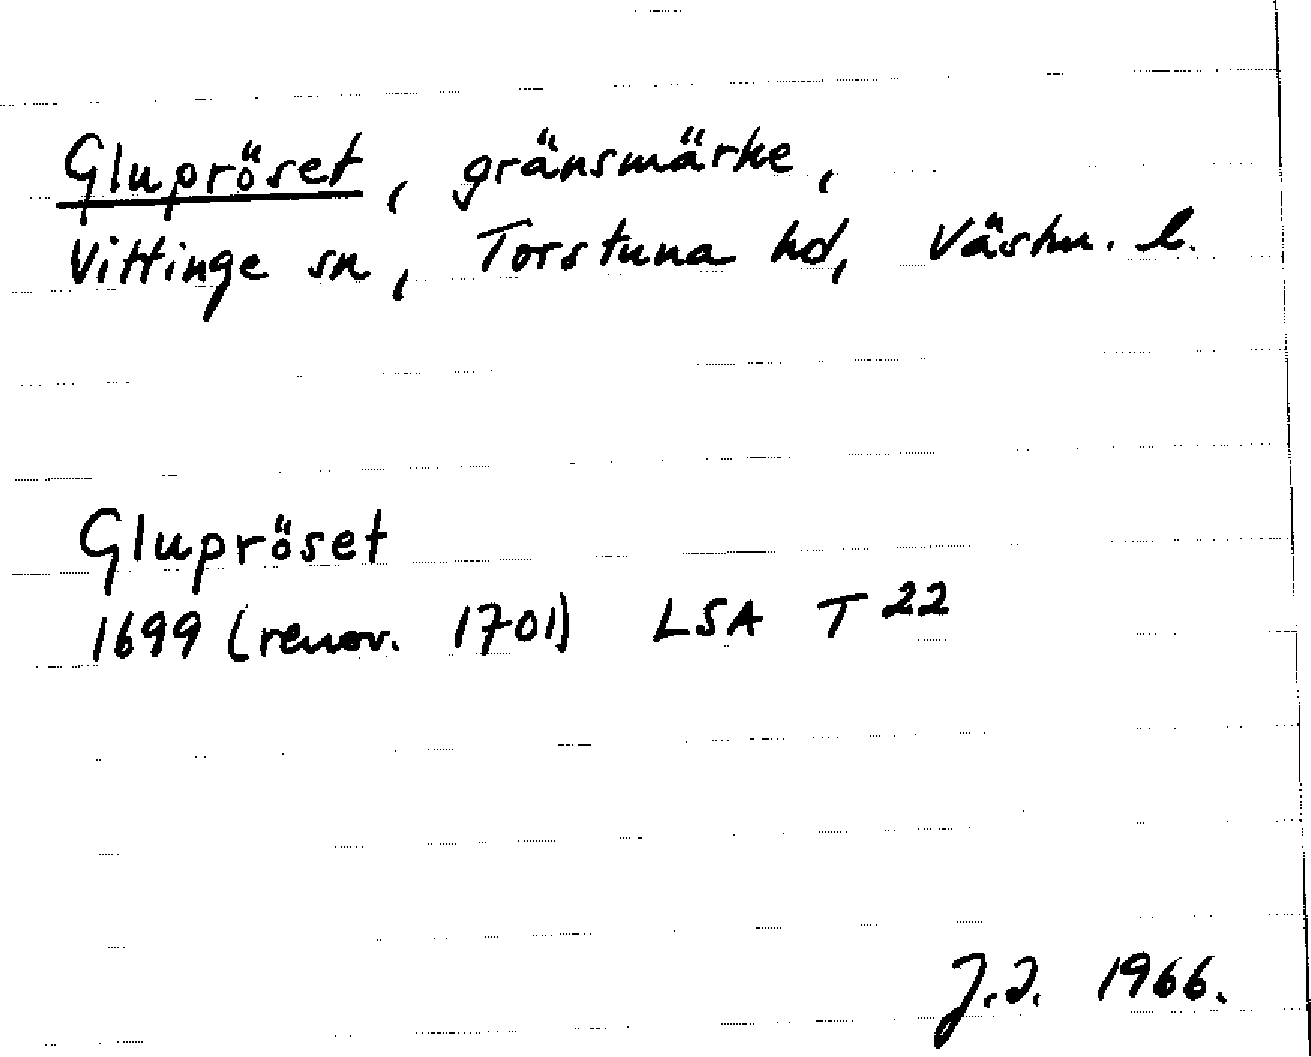 Glupröset, gränsmärke,
Vittinge sn, Torstuna hd, Västm. l.
Glupröset
1699 (renov. 1701) LSA T 22
J.I. 1966.